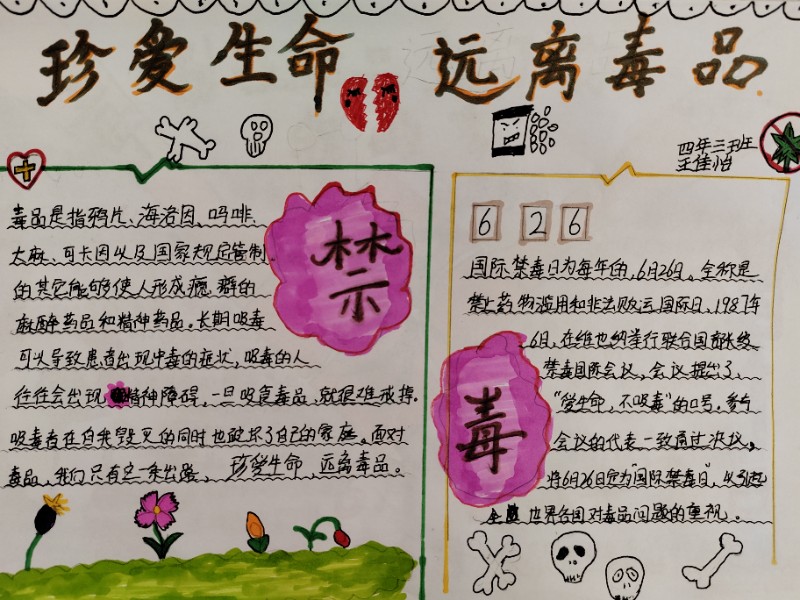 珍爱生命 远离毒品
四年三班
王佳怡
毒品是指鸦片、海洛因、吗啡、
大麻、可卡因以及国家规定管制
的其它能够使人形成瘾癖的
麻醉药品和精神药品。长期吸毒
可以导致患者出现中毒的症状,吸毒的人
往往会出现精神障碍,一旦吸食毒品,就很难戒掉。
吸毒者在自我毁灭的同时也破坏了自己的家庭。面对
毒品,我们只有一条出路,珍爱生命,远离毒品。
禁
6 2 6
国际禁毒日为每年的,6月26日。全称是
禁止药物滥用和非法贩运国际日,1987年
6月,在维也纳举行联合国
禁毒国际会议,会议提出了
“爱生命,不吸毒”的口号。参与
会议的代表一致通过决议,
将6月26日定为“国际禁毒日”,以引起
全世界各国对毒品问题的重视。
毒